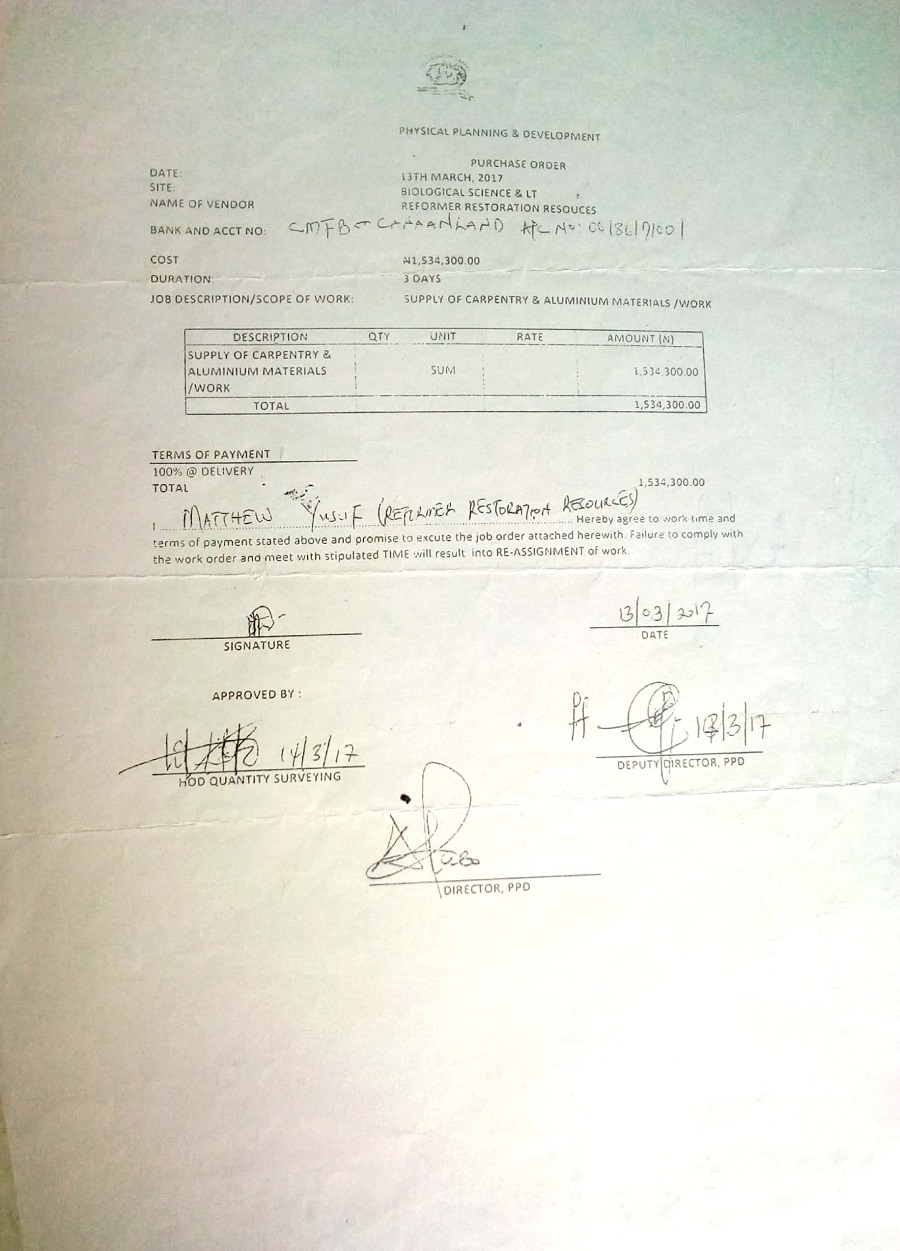 PHYSICAL PLANNING & DEVELOPMENT
PURCHASE ORDER
DATE: 13TH MARCH, 2017
SITE: BIOLOGICAL SCIENCE & LT
NAME OF VENDOR REFORMER RESTORATION RESOUCES
BANK AND ACCT NO: CMFB CANAANLAND A/C No:
COST ₦1,534,300.00
DURATION: 3 DAYS
JOB DESCRIPTION/SCOPE OF WORK: SUPPLY OF CARPENTRY & ALUMINIUM MATERIALS /WORK
DESCRIPTION QTY UNIT RATE AMOUNT (N)
SUPPLY OF CARPENTRY &
ALUMINIUM MATERIALS SUM 1,534,300.00
/WORK
TOTAL 1,534,300.00
TERMS OF PAYMENT
100% @ DELIVERY
TOTAL 1,534,300.00
I MATTHEW YUSUF (REFORMER RESTORATION RESOURCES) Hereby agree to work time and
terms of payment stated above and promise to excute the job order attached herewith. Failure to comply with
the work order and meet with stipulated TIME will result into RE-ASSIGNMENT of work.
13/03/2017
SIGNATURE DATE
APPROVED BY :
14/3/17 13/3/17
HOD QUANTITY SURVEYING DEPUTY DIRECTOR, PPD
DIRECTOR, PPD